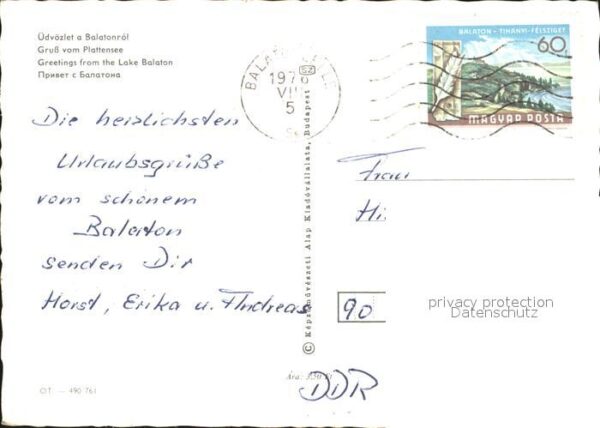 Üdvözlet a Balatonról
Gruß vom Plattensee
Greetings from the Lake Balaton
Привет с Балатона
1976
VII
5
BALATON - TIHANYI-FÉLSZIGET
60
MAGYAR POSTA
Die herzlichsten
Urlaubsgrüße
vom schönem
Balaton
senden Dir
Horst, Erika u. Andreas
© Képzőművészeti Alap Kiadóvállalata, Budapest
Frau
Hi
90
privacy protection
Datenschutz
DDR
Ára: 3,50 Ft
CIT. — 490 761